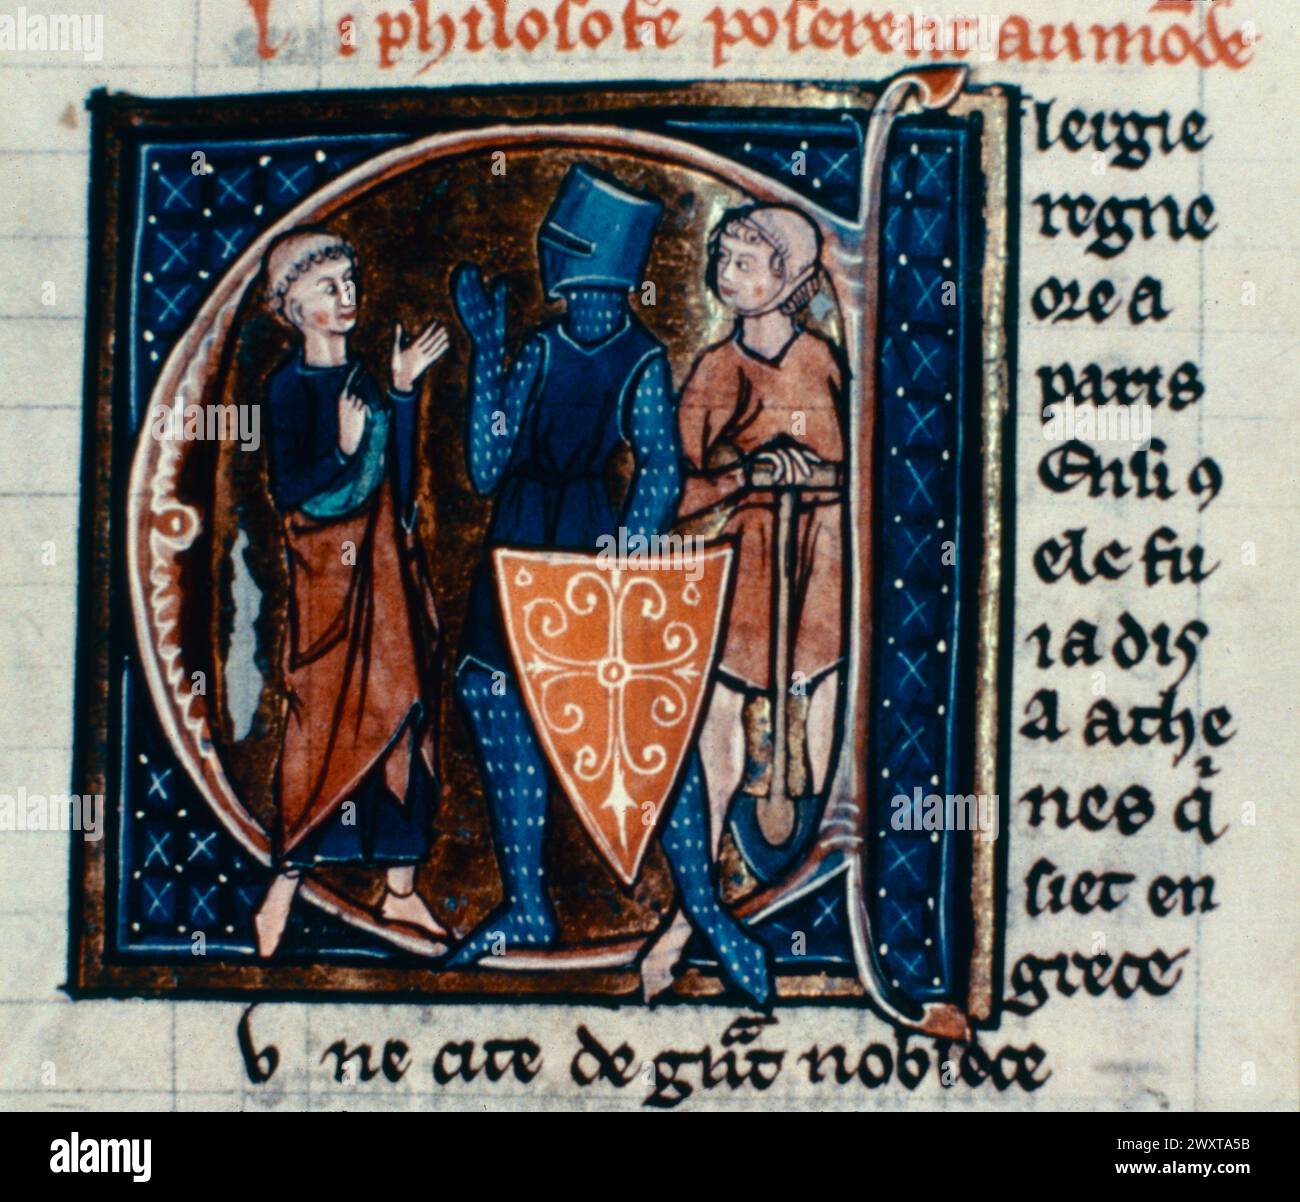 li philosofe poserent au mōde
lergie
regne
ore a
paris
Ensi 9
ele fu
ia dis
A athe
nes q
siet en
grece
v ne cite de grāt noblece
alamy
Image ID: 2WXTA5B
www.alamy.com